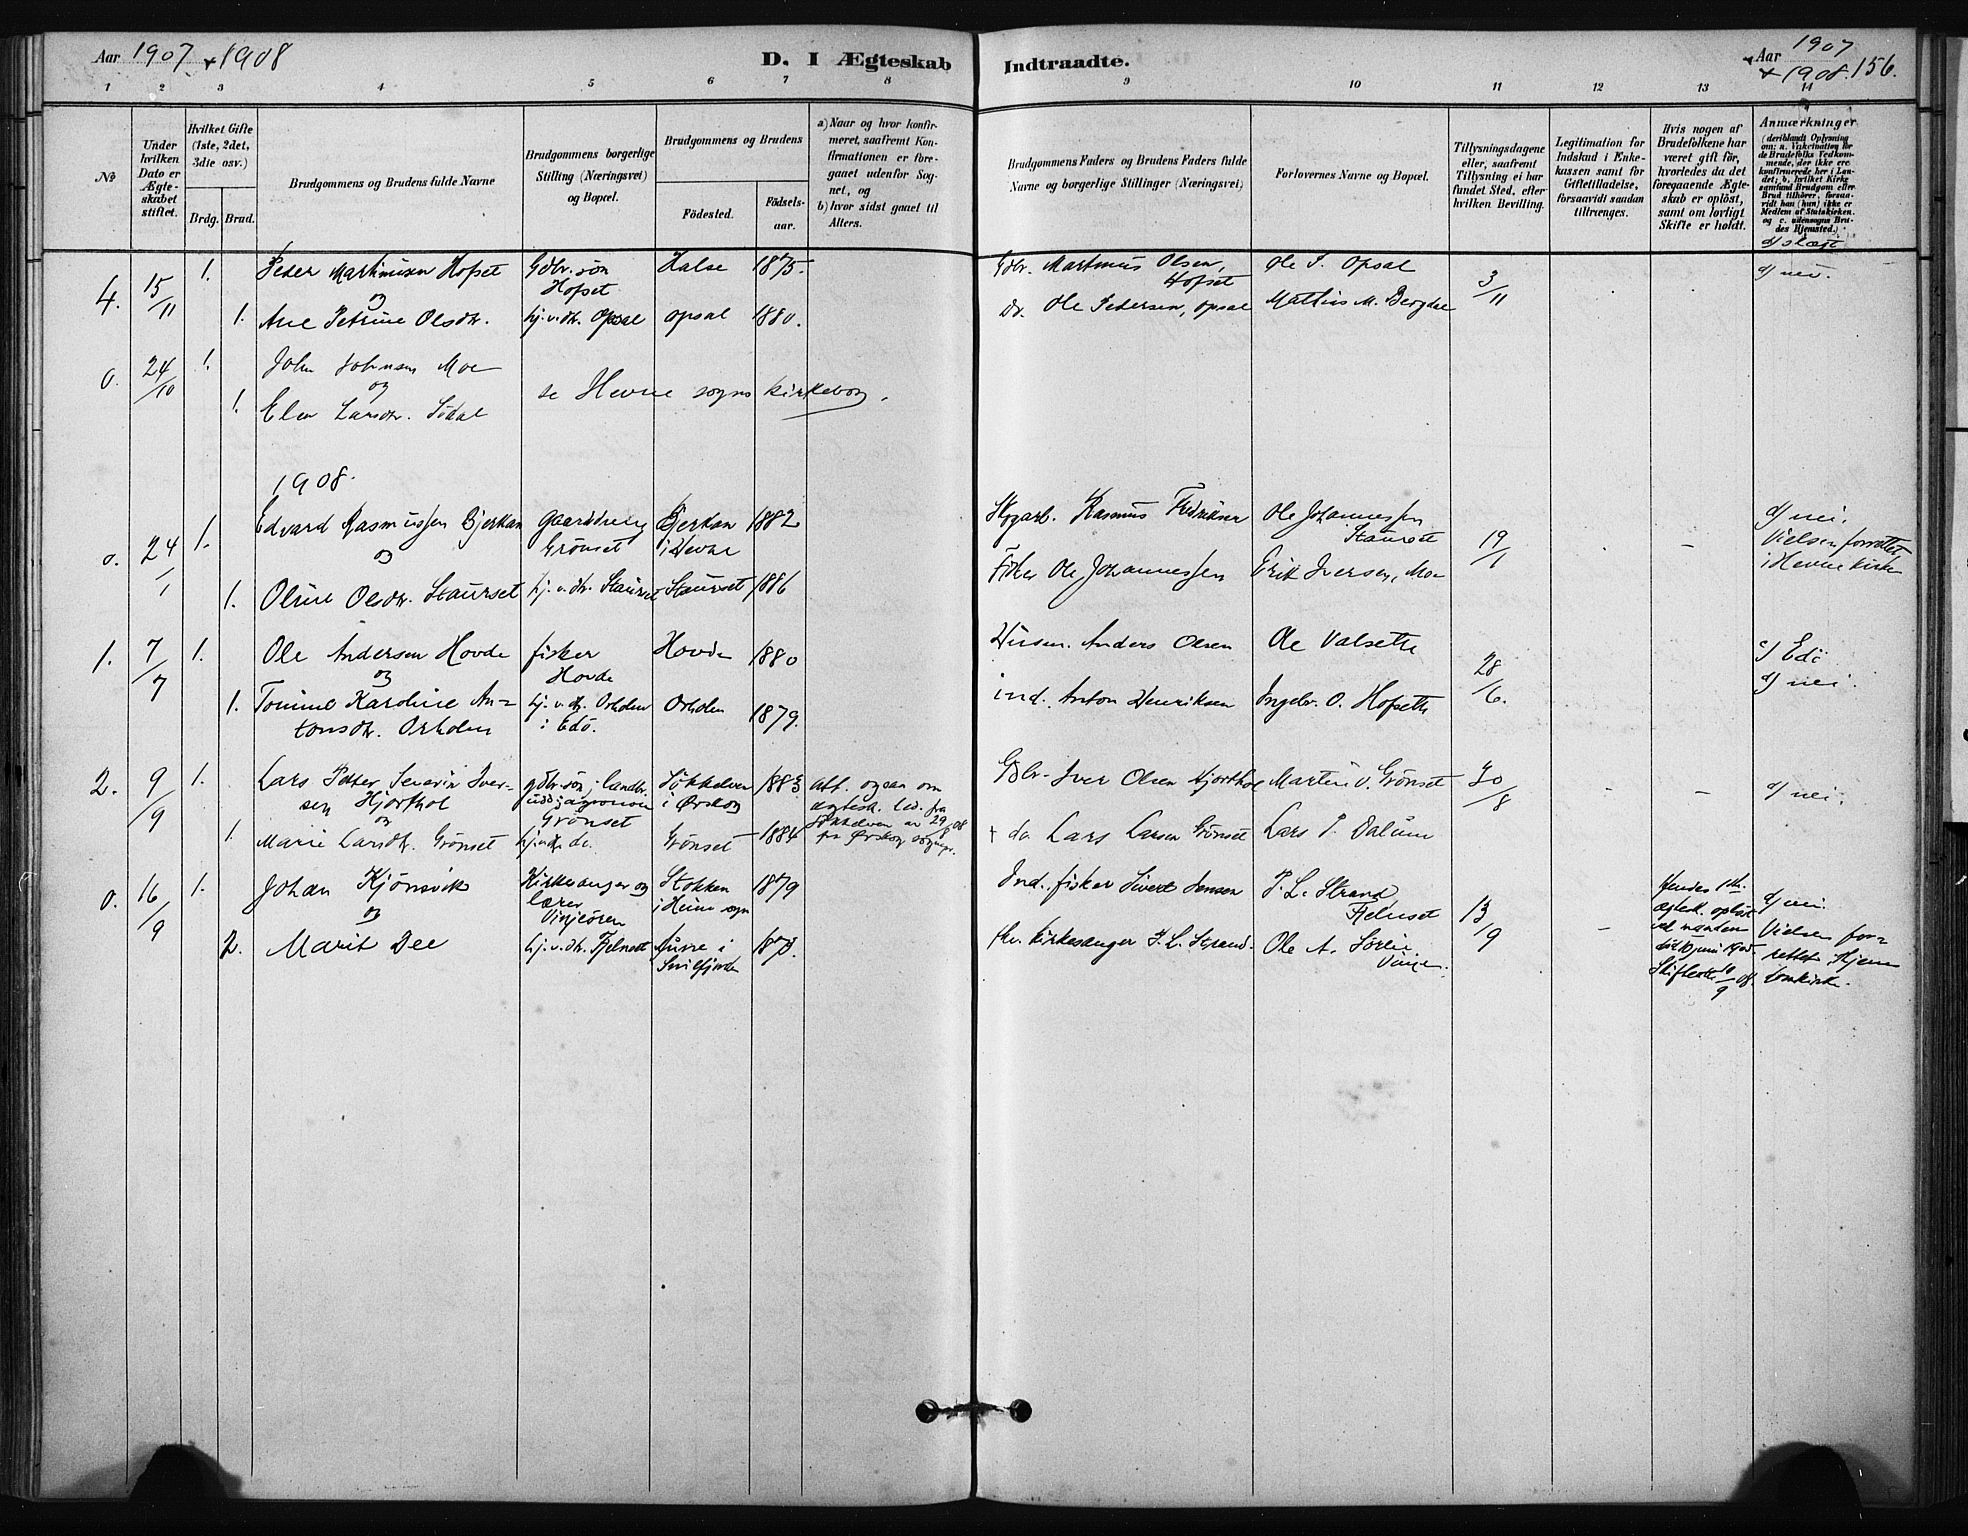 Aar 1907 + 1908
D. I Ægteskab Indtraadte.
Aar 1907 + 1908. 156.
1 2 3 4 5 6 7 8 9 10 11 12 13 14
No
Under hvilken Dato er Ægteskabet stiftet.
Hvilket Gifte (1ste, 2det, 3die osv.)
Brdg. Brud.
Brudgommens og Brudens fulde Navne
Brudgommens borgerlige Stilling (Næringsvei) og Bopæl.
Brudgommens og Brudens
Födested.
Födselsaar.
a) Naar og hvor konfirmeret, saafremt Konfirmationen er foregaaet udenfor Sognet, og
b) hvor sidst gaaet til Alters.
Brudgommens Faders og Brudens Faders fulde Navne og borgerlige Stillinger (Næringsvei)
Forlovernes Navne og Bopæl.
Tillysningsdagene eller, saafremt Tillysning ei har fundet Sted, efter hvilken Bevilling.
Legitimation for Indskud i Enkekassen samt for Giftetilladelse, forsaavidt saadan tiltrænges.
Hvis nogen af Brudefolkene har været gift för, hvorledes da det foregaaende Ægteskab er oplöst, samt om lovligt Skifte er holdt.
Anmærkninger
(deriblandt Oplysning om: a. Vakcination for de Brudefolks Vedkommende, der ikke ere konfirmerede her i Landet; b. hvilket Kirkesamfund Brudgom eller Brud tilhörer, forsaavidt han (hun) ikke er Medlem af Statskirken, og c. udensogns Brudes Hjemsted.)
d) slægt
4. 15/11 1. Peder Martinusen Hofset Gdbr. søn Hofset Halse 1875. Gdbr. Martinus Olsen, Hofset Ole P. Opsal 3/11 d) nei.
og
1. Ane Petrine Olsdtr. hj. v. dtr. Opsal Opsal 1880. Do. Ole Pedersen, Opsal Mattias M. Bergdal
0. 24/10 1. John Johnsen Moe
og
1. Elen Larsdtr. Sødal se Hevne sogns kirkebog.
1908.
0. 24/1 1. Edvard Rasmussen Bjerkan Grönset Bjerkan i Hevne 1882 Rasmus Fredriksen Ole Johannessen Staurset 19/1 - d) nei. Vielsen forrettet i Hevne kirke
og
1. Oline Olsdtr. Staurset hj. v. dtr. Staurset Staurset 1886 Fisker Ole Johannessen Erik Iversen, Moe
1. 7/7 1. Ole Andersen Hovde fisker Hovde Hovde 1880 Husm. Anders Olsen Ole Valsette 28/6. c) Edö d) nei.
og
1. Karoline Antonsdtr. Orholen hj. v. dtr. Orholen i Edö. Orholen 1879. ind. Anton Henriksen Ingebr. O. Hofsette
2. 9/9 1. Lars Petter Severin Iversen Hjorthol gdbr. søn, landbr. Grönset Sökkelven i Ørskog 1883 att. ogsaa om ægtesk. led. fra Sökkelven av 29/8 08 fra Ørskog sognepr. Gdbr. Iver Olsen Hjorthol Martin O. Grönset 30/8 - - d) nei.
og
1. Marie Larsdtr. Grönset hj. v. dtr. do. Grönset 1884 + do Lars Larsen Grönset Lars P. Dalum
0. 16/9 1. Johan Kjönsvik Kirkesanger og lærer Vinjeören Stokken i Heim sogn 1879 Ind., fisker Sivert Jensen P. L. Strand, Fjelnset 13/9 - Hendes 1ste ægtesk. oplöst ved manden död juni 1905. Skifteatt. 10/9 08. d) nei. Vielsen forrettet Hjemnes kirke.
og
2. Marit Dee hj. v. dtr. Fjelnset i Snilfjorden 187 fhv. kirkesanger P. L. Strand Ole A. Vinje.